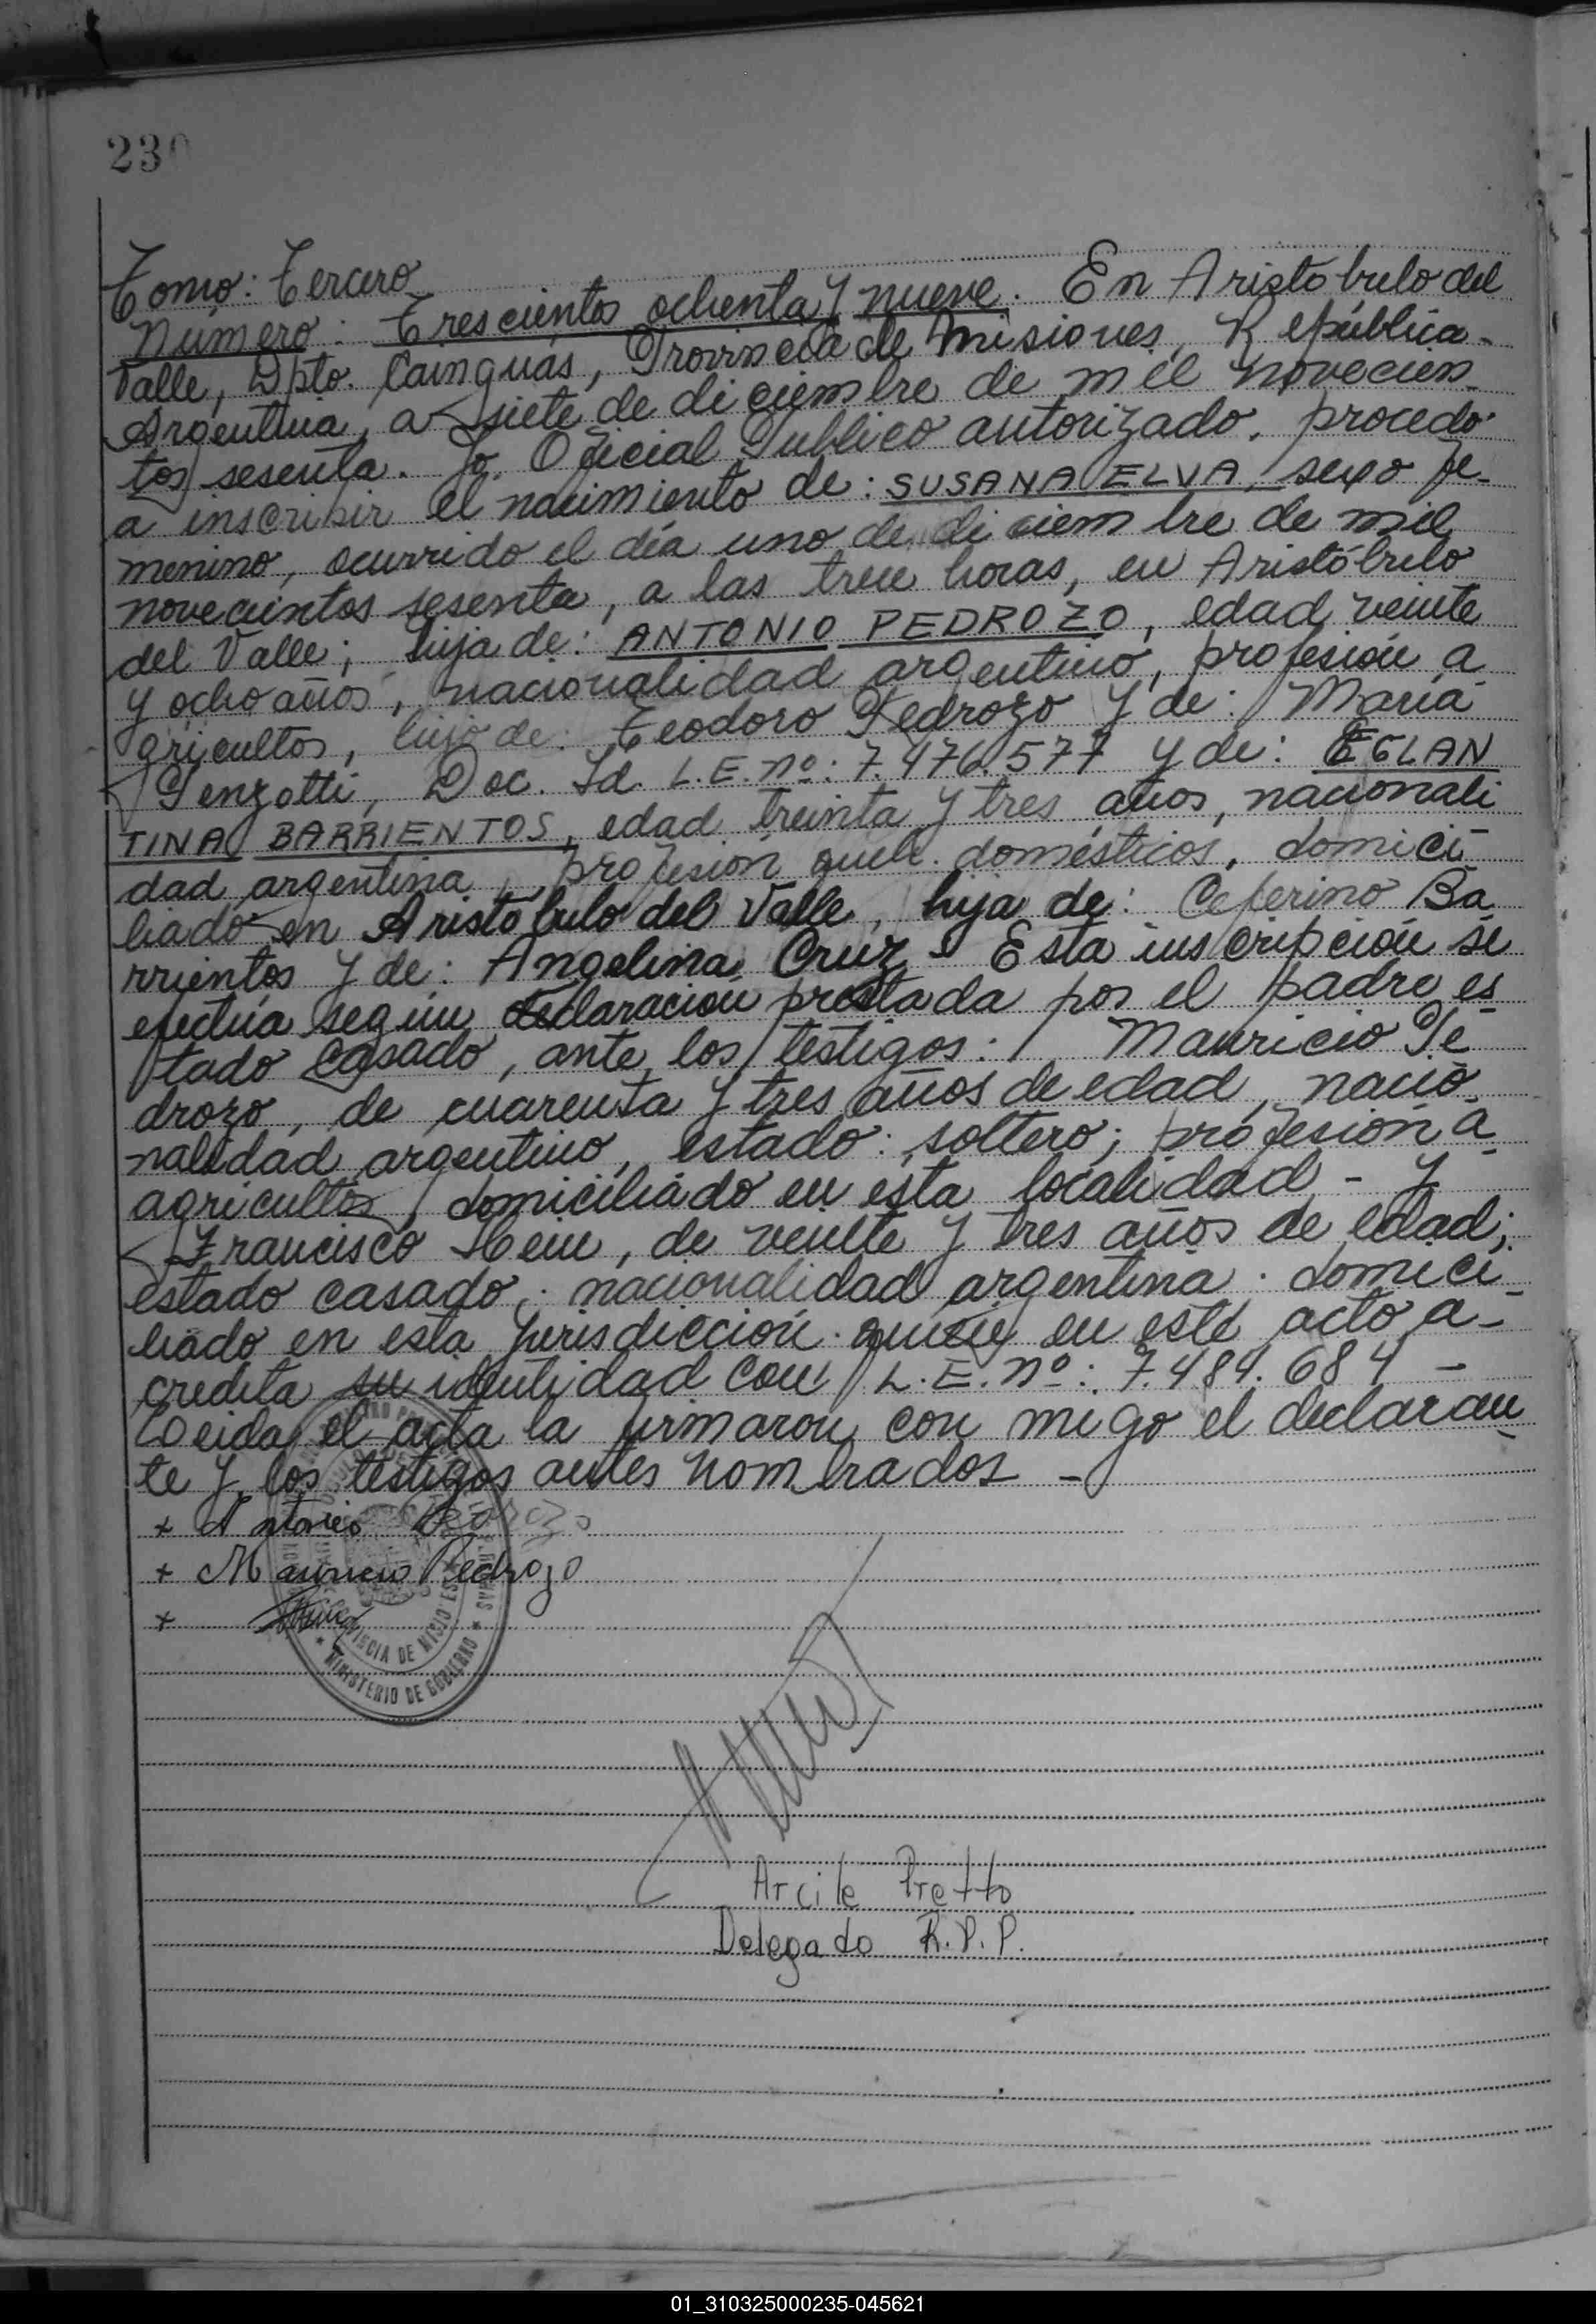 230
Tomo: Tercero
Número: Trescientos ochenta y nueve. En Aristóbulo del
Valle, Dpto. Cainguás, Provincia de Misiones, República
Argentina, a siete de diciembre de mil novecien-
tos sesenta. Yo, Oficial Publico autorizado, procedo
a inscribir el nacimiento de: SUSANA ELVA, sexo fe-
menino, ocurrido el día uno de diciembre de mil
novecientos sesenta, a las trece horas, en Aristóbulo
del Valle; hija de: ANTONIO PEDROZO, edad veinte
y ocho años, nacionalidad argentino, profesión a-
gricultor, hijo de: Teodoro Pedrozo y de: María
Penzotti, Doc. Id. L.E. nº: 7.476.577 y de: EGLAN
TINA BARRIENTOS, edad treinta y tres años, nacionali
dad argentina, profesión queh. domésticos, domici-
liado en Aristóbulo del Valle, hija de: Ceferino Ba
rrientos y de: Angelina Cruz - Esta inscripción se
efectúa según declaración prestada por el padre es
tado casado, ante los testigos: Mauricio Pe
drozo, de cuarenta y tres años de edad, nacio-
nalidad argentino, estado: soltero; profesión a-
agricultor, domiciliado en esta localidad - y
Francisco Hein, de veinte y tres años de edad;
estado casado; nacionalidad argentina: domici-
liado en esta jurisdicción quien en este acto a-
credita su identidad con L.E. nº: 7.484.684 -
Leida el acta la firmaron con migo el declaran
te y los testigos antes nombrados -
+ Antonio Pedrozo
+ Mauricio Pedrozo
+
PROVINCIA DE MISIONES
* MINISTERIO DE GOBIERNO *
Arcile Pretto
Delegado R.P.P.
01_310325000235-045621